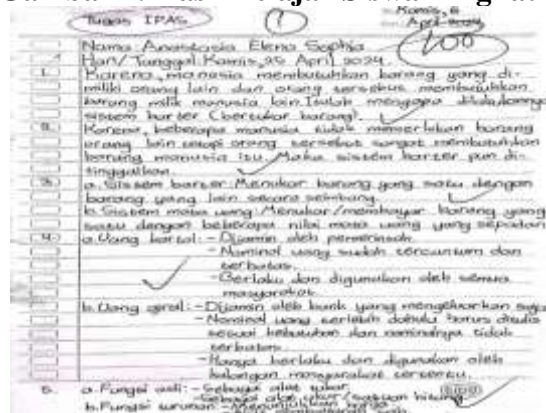 Tugas IPAS
Kamis,
April 2024
100
Nama: Anastasia Elena Sophia
Hari/Tanggal: Kamis, 25 April 2024
1. Karena, manusia membutuhkan barang yang di-
miliki orang lain dan orang tersebut membutuhkan
barang milik manusia lain. Itulah mengapa
sistem barter (bertukar barang).
2. Karena, beberapa manusia tidak memerlukan barang
orang lain tetapi orang tersebut sangat membutuhkan
barang manusia itu. Maka sistem barter pun di-
tinggalkan.
3. a. Sistem barter: Menukar barang yang satu dengan
barang yang lain secara seimbang.
b. Sistem mata uang: Menukar/membayar barang yang
satu dengan beberapa nilai mata uang yang sepadan
4. a. Uang kartal: - Dijamin oleh pemerintah
- Nominal uang sudah tercantum dan
terbatas.
- Berlaku dan digunakan oleh semua
masyarakat
b. Uang giral: - Dijamin oleh bank yang mengeluarkan saja
- Nominal uang terlebih dahulu harus ditulis
sesuai kebutuhan dan nominalnya tidak
terbatas
- Hanya berlaku dan digunakan oleh
kalangan masyarakat tertentu.
5. a. Fungsi asli: - Sebagai alat tukar
- Sebagai alat ukur/satuan hitung
b. Fungsi turunan: - Menunjukkan harga